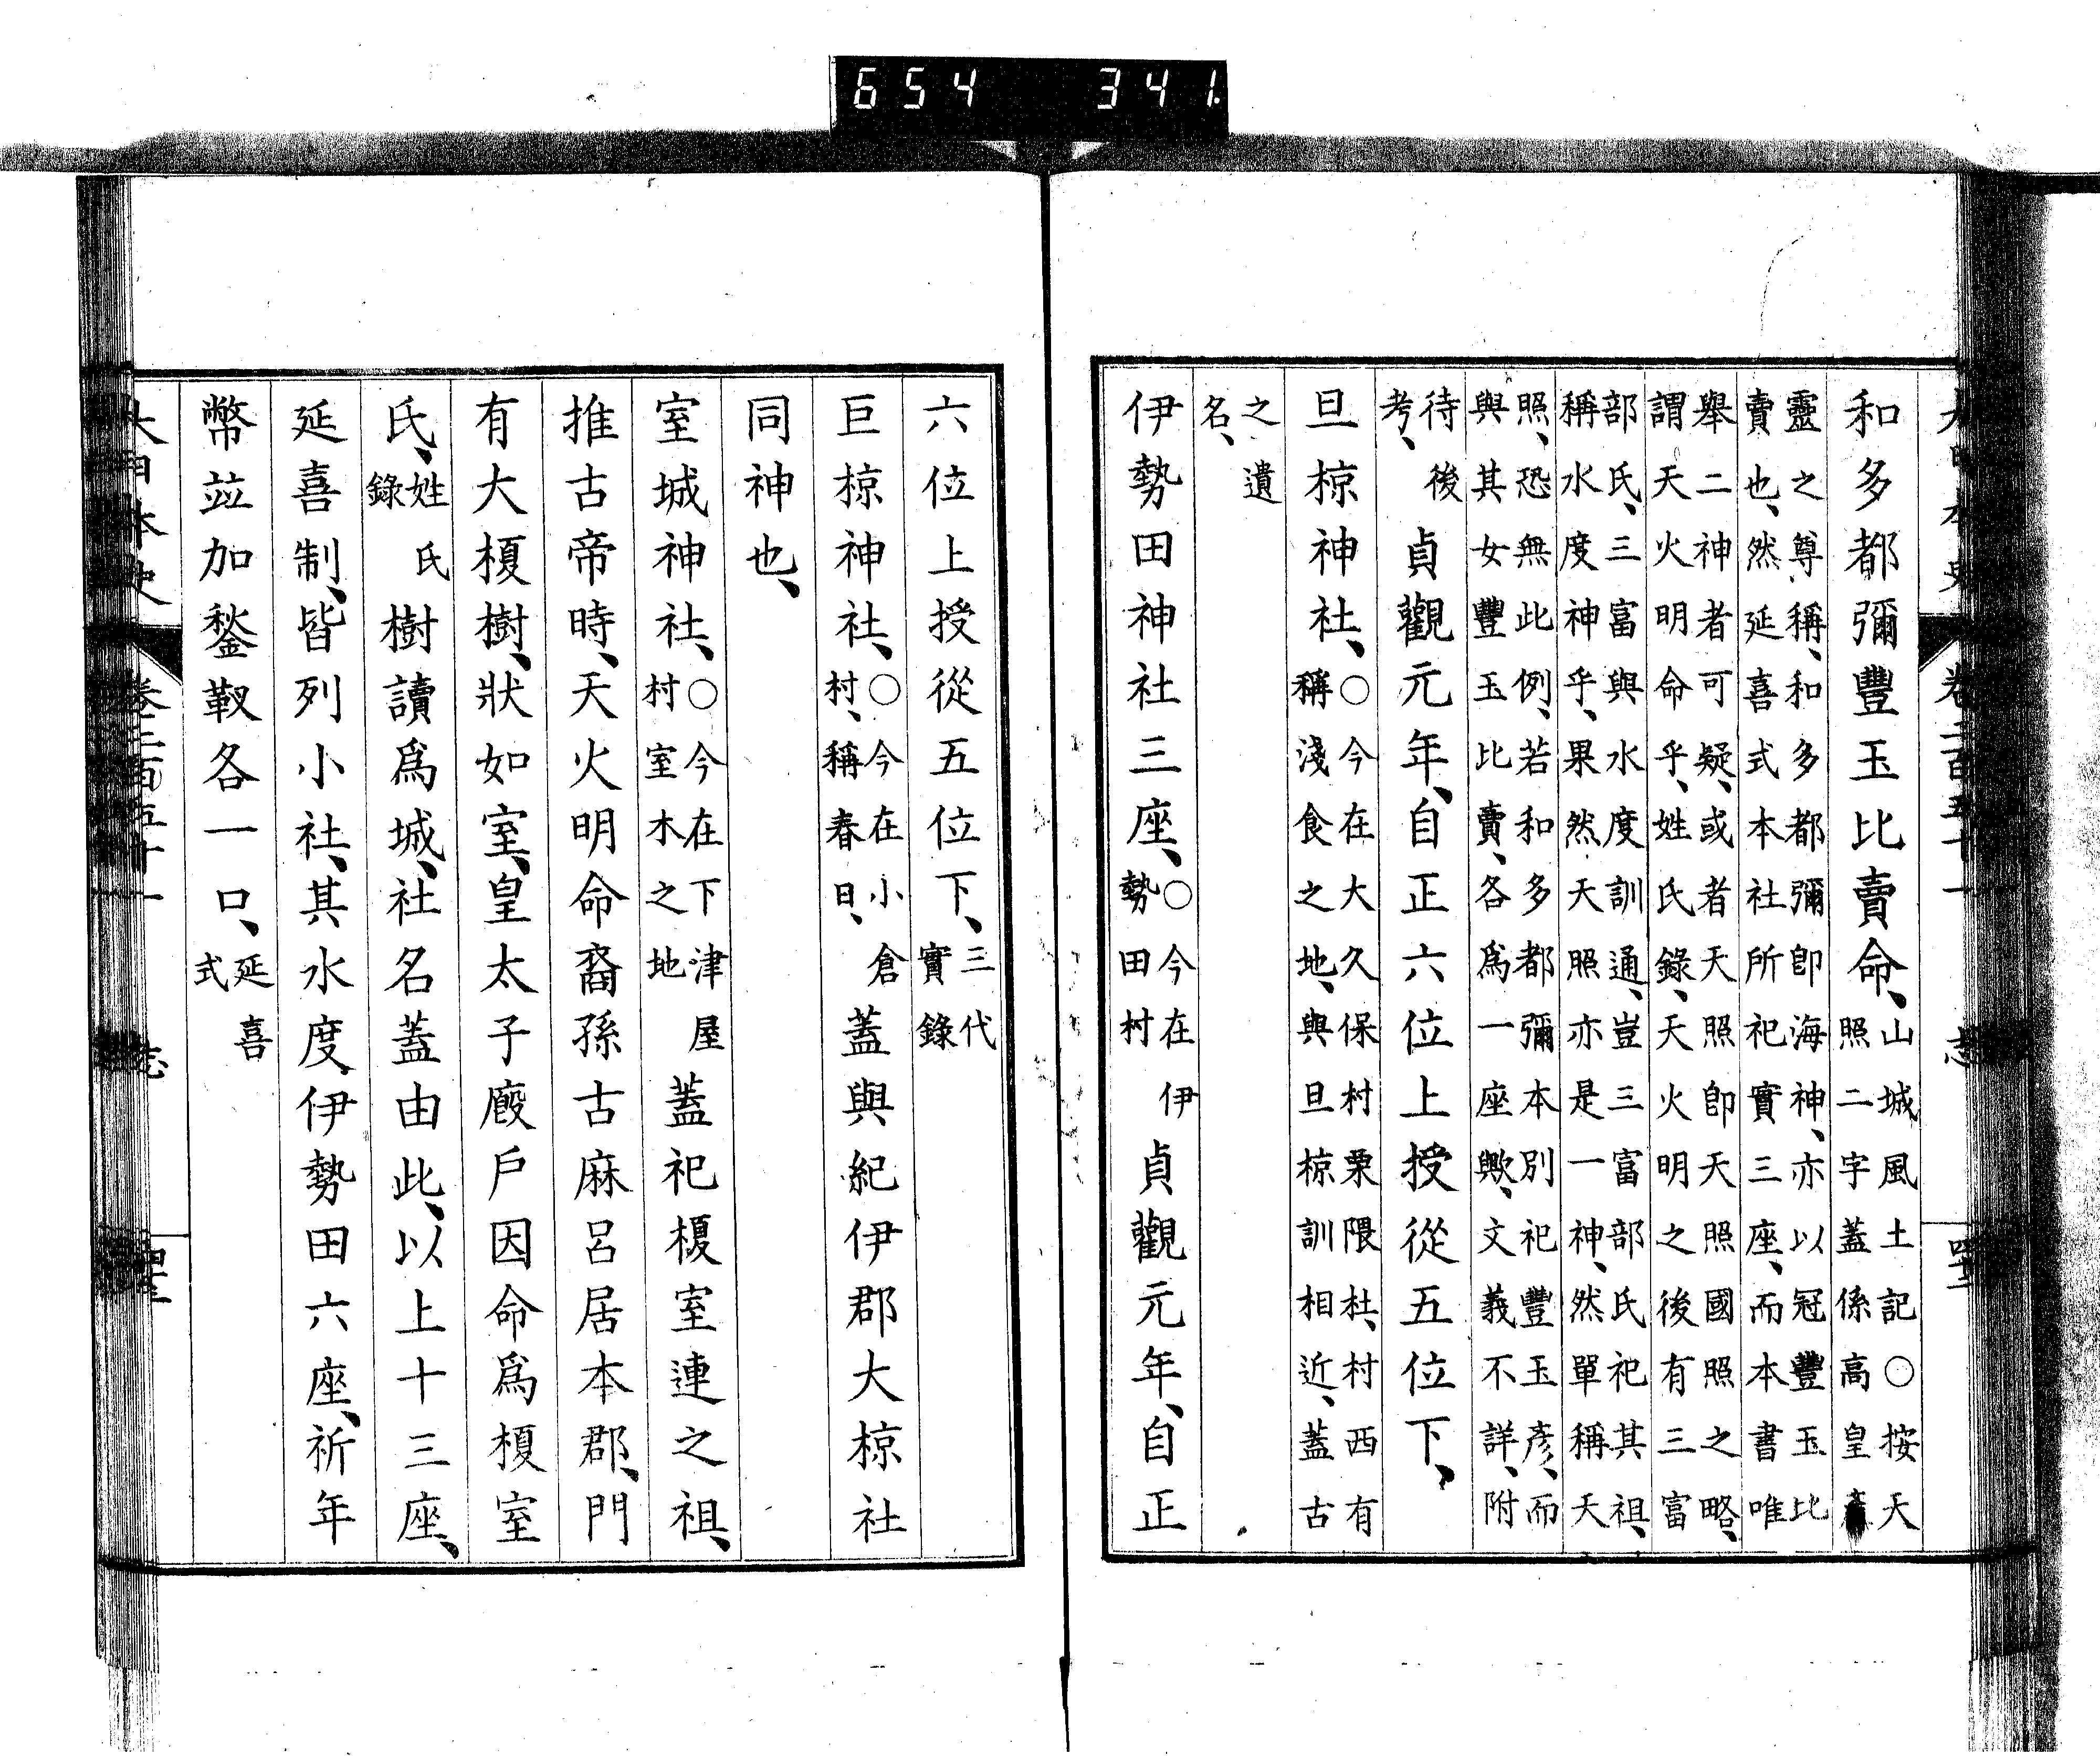 654 341.
大日本史 卷二百五十一 志
和多都彌豐玉比賣命、山城風土記○按天
照二字蓋係高皇
靈之尊稱、和多都彌卽海神、亦以冠豐玉比
賣也、然延喜式本社所祀實三座、而本書唯
舉二神者可疑、或者天照卽天照國照之略、
謂天火明命乎、姓氏錄、天火明之後有三富
部氏、三富與水度訓通、豈三富部氏祀其祖、
稱水度神乎、果然天照亦是一神、然單稱天
照、恐無此例、若和多都彌本別祀豐玉彥、而
與其女豐玉比賣、各爲一座歟、文義不詳、附
待後
考、貞觀元年、自正六位上授從五位下、
旦椋神社、○今在大久保村栗隈杜、村西有
稱淺食之地、與旦椋訓相近、蓋古
之遺
名、
伊勢田神社三座、○今在伊
勢田村 貞觀元年、自正
六位上授從五位下、三代
實錄
巨椋神社、○今在小倉
村、稱春日、蓋與紀伊郡大椋社
同神也、
室城神社、○今在下津屋
村室木之地 蓋祀榎室連之祖、
推古帝時、天火明命裔孫古麻呂居本郡、門
有大榎樹、狀如室、皇太子廏戶因命爲榎室
氏、姓氏
錄 樹讀爲城、社名蓋由此、以上十三座、
延喜制、皆列小社、其水度伊勢田六座、祈年
幣竝加鍫靫各一口、延喜
式
大日本史 卷二百五十一 志